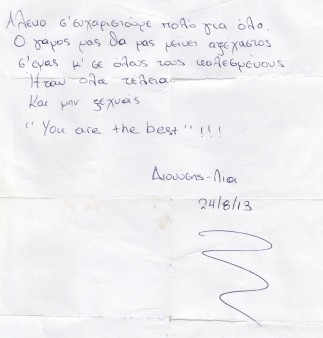 Αλεκο σ'ευχαριστούμε πολύ για όλα.
Ο γάμος μας θα μας μείνει αξέχαστος
σ'εμας κ' σε όλους τους καλεσμένους
Ήταν όλα τέλεια
Και μην ξεχνάς
"You are the best"!!!
Διονύσης-Λια
24/8/13